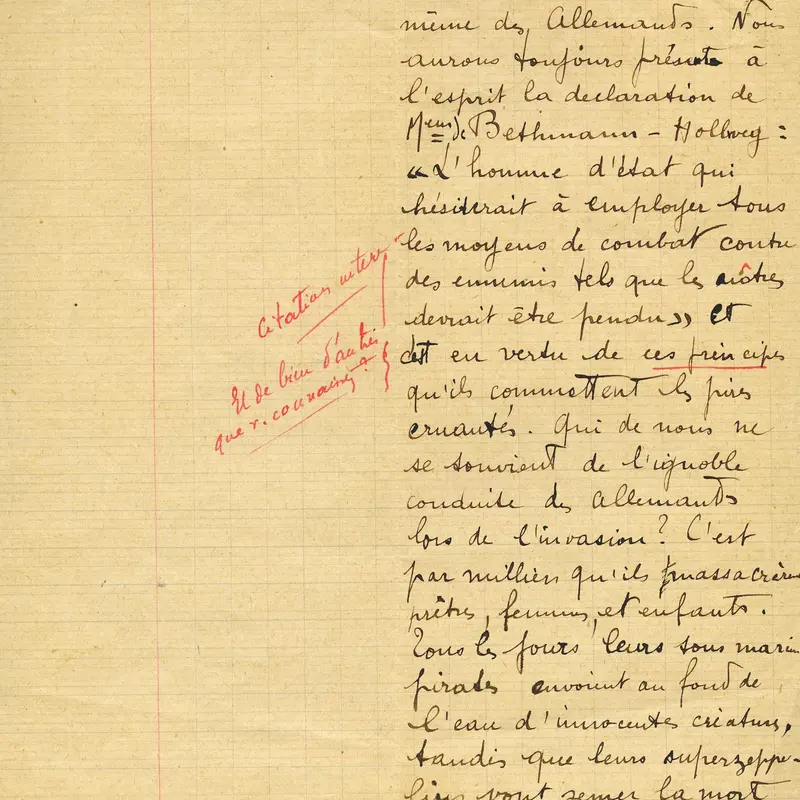 même des Allemands. Nous
aurons toujours présente à
l'esprit la declaration de
Mr de Bethmann-Hollweg :
« L'homme d'état qui
hésiterait à employer tous
les moyens de combat contre
des ennemis tels que les nôtres
devrait être pendu » et
c'est en vertu de ces principes
qu'ils commettent les pires
cruautés. Qui de nous ne
se souvient de l'ignoble
conduite des Allemands
lors de l'invasion? C'est
par milliers qu'ils massacrèrent
prêtres, femmes, et enfants.
Tous les jours leurs sous marins
pirates envoient au fond de
l'eau d'innocentes créatures,
tandis que leurs superzeppe-
lins vont semer la mort
Citation
Et de bien d'autres
que v. connaissez?